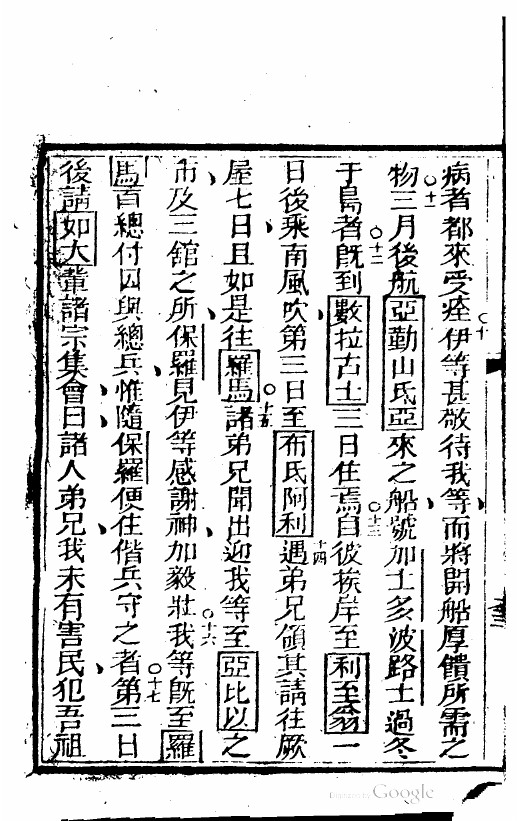 病者都來受痊○十伊等甚敬待我等而將開船厚饋所需之
物○十一三月後航亞勤山氏亞來之船號加士多波路士過冬
于島者○十二旣到數拉古士三日住焉○十三自彼挨岸至利至翁一
日後乘南風吹第三日至布氏阿利○十四遇弟兄領其請往厥
屋七日且如是往羅馬○十五諸弟兄聞出迎我等至亞比以之
市及三館之所保羅見伊等感謝神加毅壯○十六我等旣至羅
馬百總付囚與總兵惟隨保羅便住偕兵守之者○十七第三日
後請如大輩諸宗集會曰諸人弟兄我未有害民犯吾祖
Digitized by Google